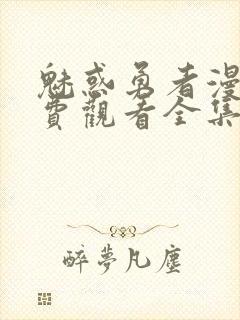 魅惑勇者漫
費觀看全集
醉夢凡塵